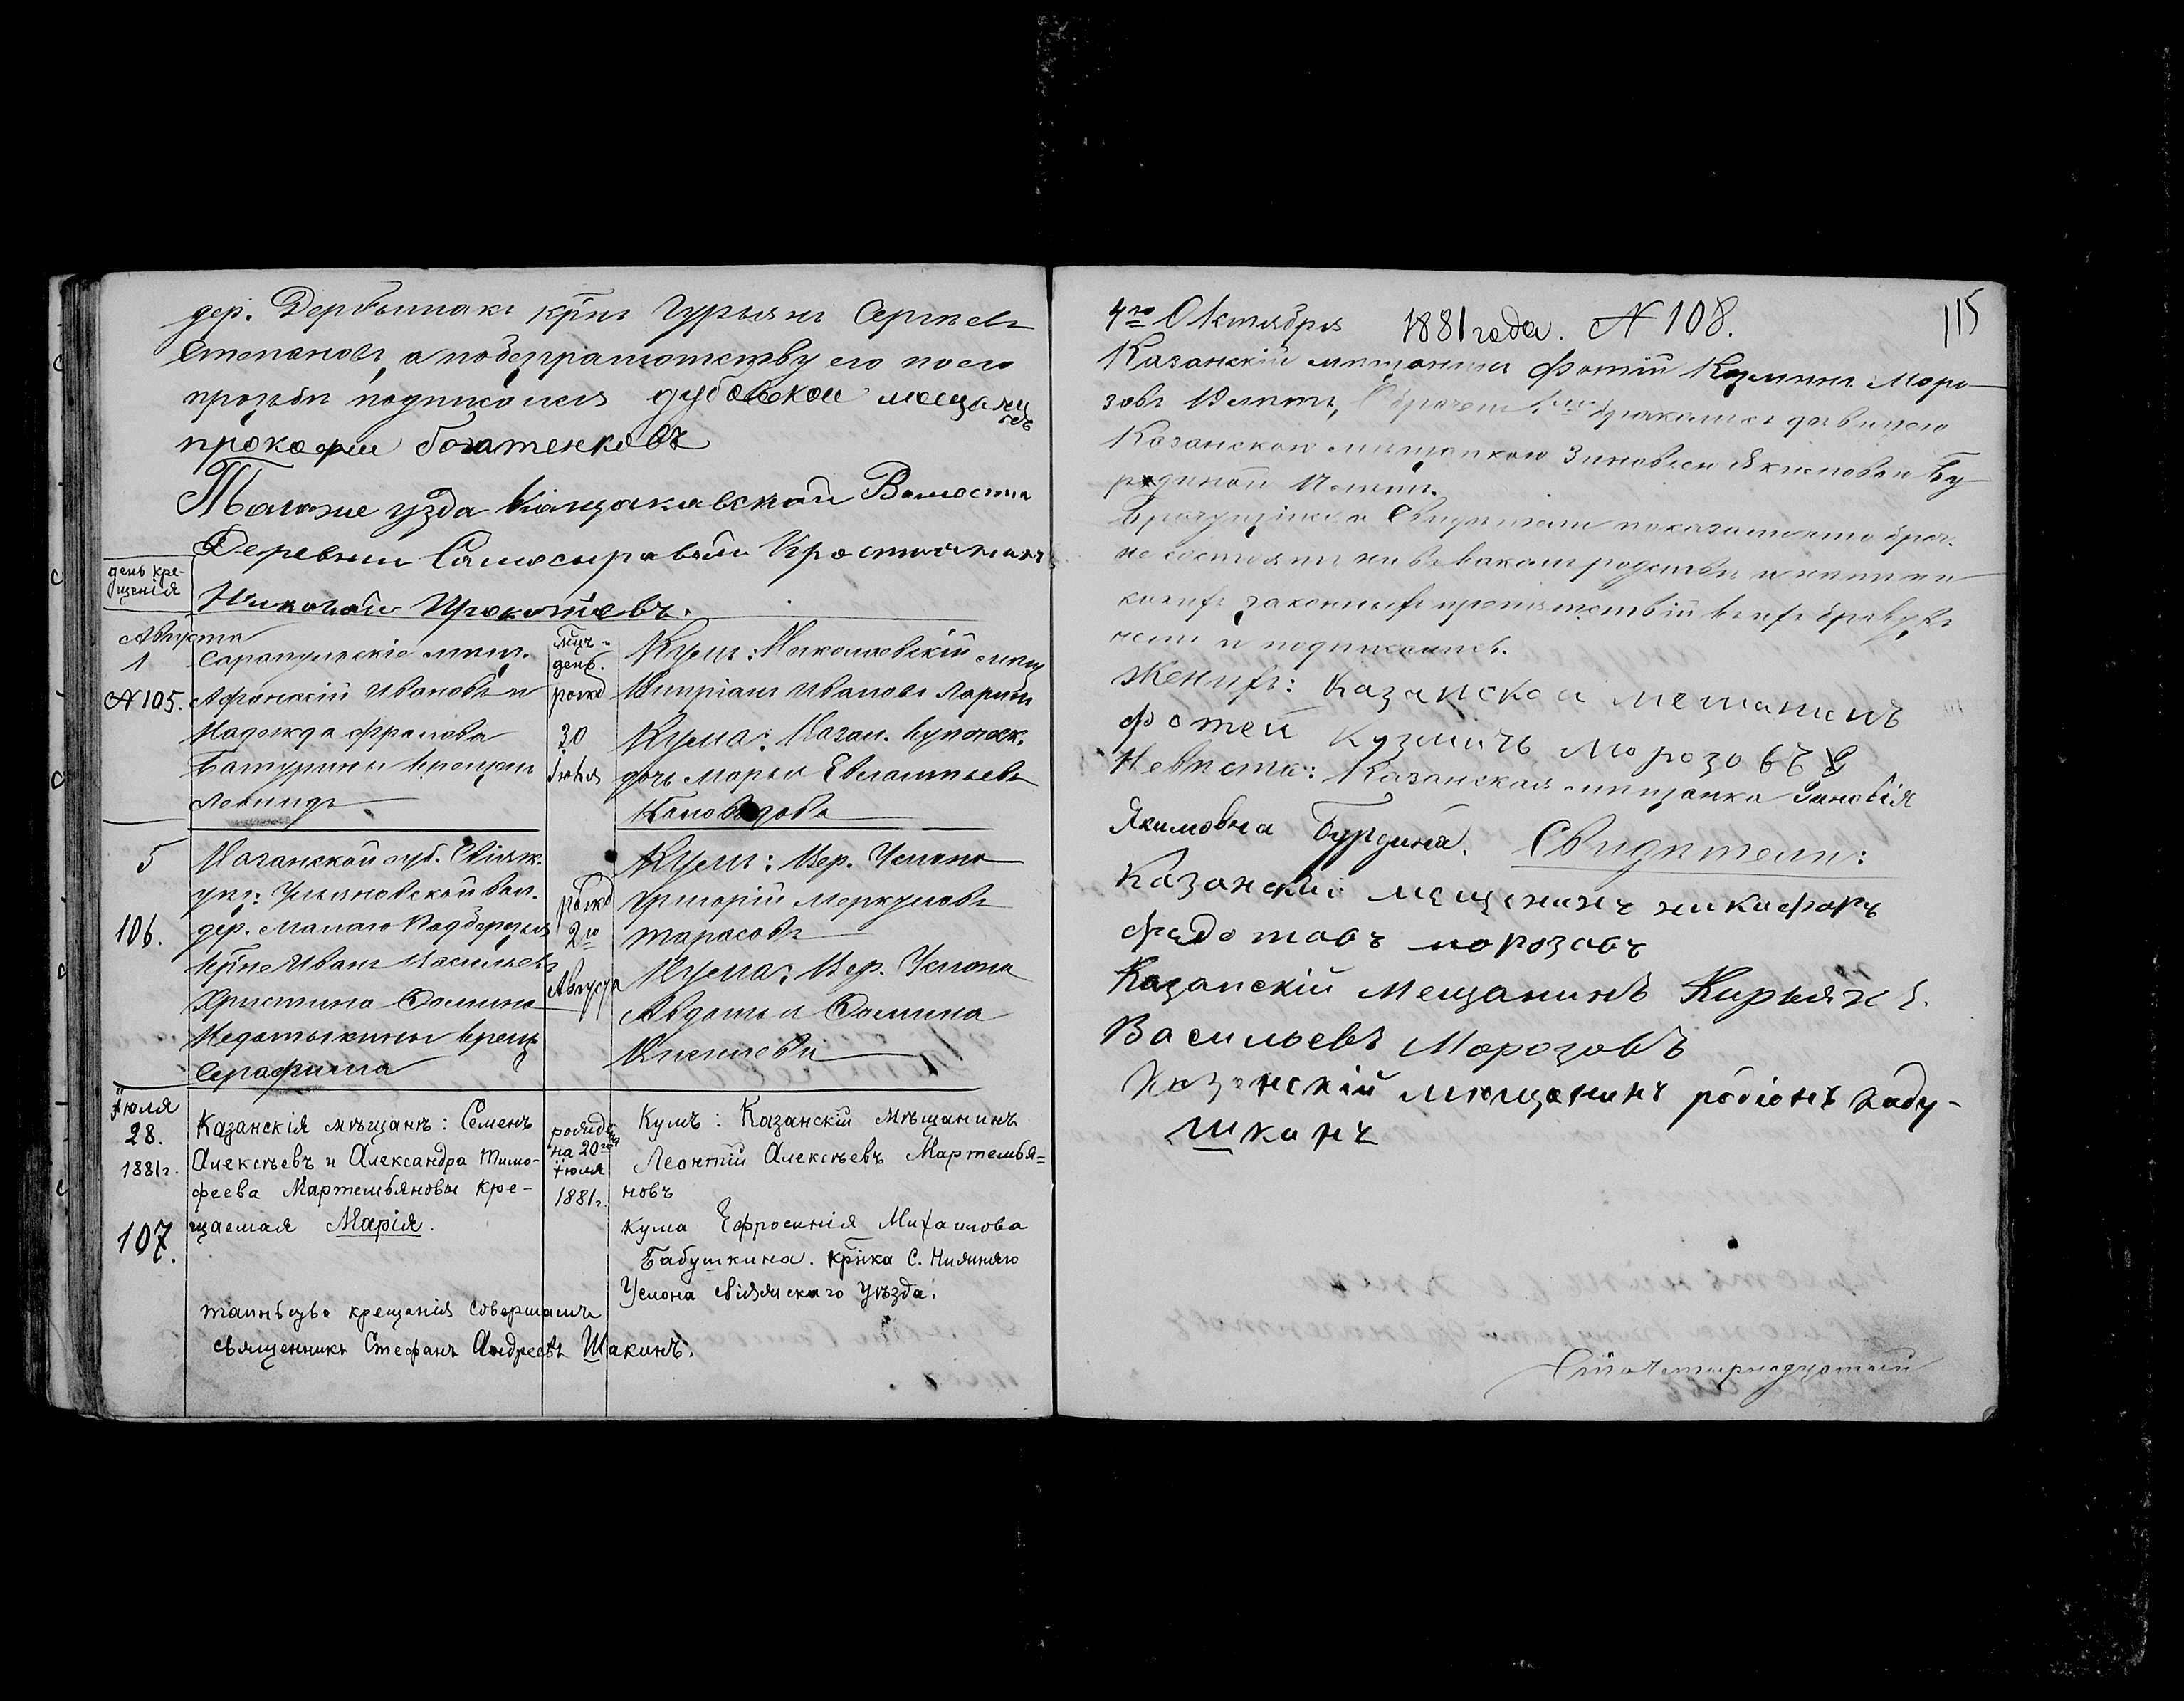 дер. Дербышкахъ кр̃нъ Гурьянъ Сергѣевъ
Степановъ, а по безграмотству его по его
прозьбѣ подписался дубовской мещанинъ
прокофеи богатенковъ
Тагоже уѣзда Волости
Деревни Самосыровай Кростиянинъ
Николай Прокопiевъ.
день кре-
щенiя
Августа
1
№ 105.
Сарапульскiе мѣщ.
Афанасiй Ивановъ и
Надежда Фролова
Батурины крещен
Леонидъ
мѣц-
день.
рожд
30
Iюля
Кумъ: Николаевскiй мѣщ
Кипрiанъ Ивановъ Ларин
Кума: Казан. купеческ.
дочь Марья Евлампьевн
5
106.
Казанской губ. Свiяж.
уѣз: Ульяновской вол.
дер. Малаго Подберезья
кр̃не Иванъ Васильевъ
Христина Фомина
Медотыкины крещ
Серафима
рожд
2го
Августа
Кумъ: Вер. Услона
Григорiй Меркуловъ
Тарасовъ
Кума: Вер. Услона
Авдотья Фомина
Iюля
28.
1881г.
107.
Казанскiя мѣщанѣ: Семенъ
Алексѣевъ и Александра Тимо-
феева Мартемьяновы кре-
щаемая Марiя.
рожде
на 20го
Iюля
1881г.
Кумъ: Казанскiй мѣщанинъ
Леонтiй Алексѣевъ Мартемья=
новъ
кума Ефросинiя Михаилова
Бабушкина. кр̃нка С. Нижняго
Услона свiяжскаго уѣзда.
таиньство крещенiя совершалъ
священникъ Стефанъ Андреевъ Шакинъ.
4го Октября 1881 года. № 108. 115
Казанскiй мѣщанинъ Фотiй Козминъ Моро-
зовъ 18 лѣтъ, 1мъ бракомъ съ дѣвицею
Казанскою мѣщанкою Зиновiею Якимовою Бу-
рдиной 17 лѣтъ.
Брачущiися и Свидѣтели показали что брач.
не состоятъ ни въ какомъ родствѣ и нѣтъ ни
какихъ законныхъ препятствiй къ ихъ браку въ
чемъ и подписались.
Женихъ: Казанской мешанинъ
фотей кузмичъ морозовъ
Невѣста: Казанская мѣщанка Зиновiя
Якимовна Бурдина. Свидѣтели:
Казанскiй мещенинъ никифоръ
федотовъ морозавъ
Казанскiй Мещанинъ Кирьякъ
Васильевъ Морозовъ
Казанскiй мещенинъ родiонъ кабу-
шканъ
Сто четырнадцатый